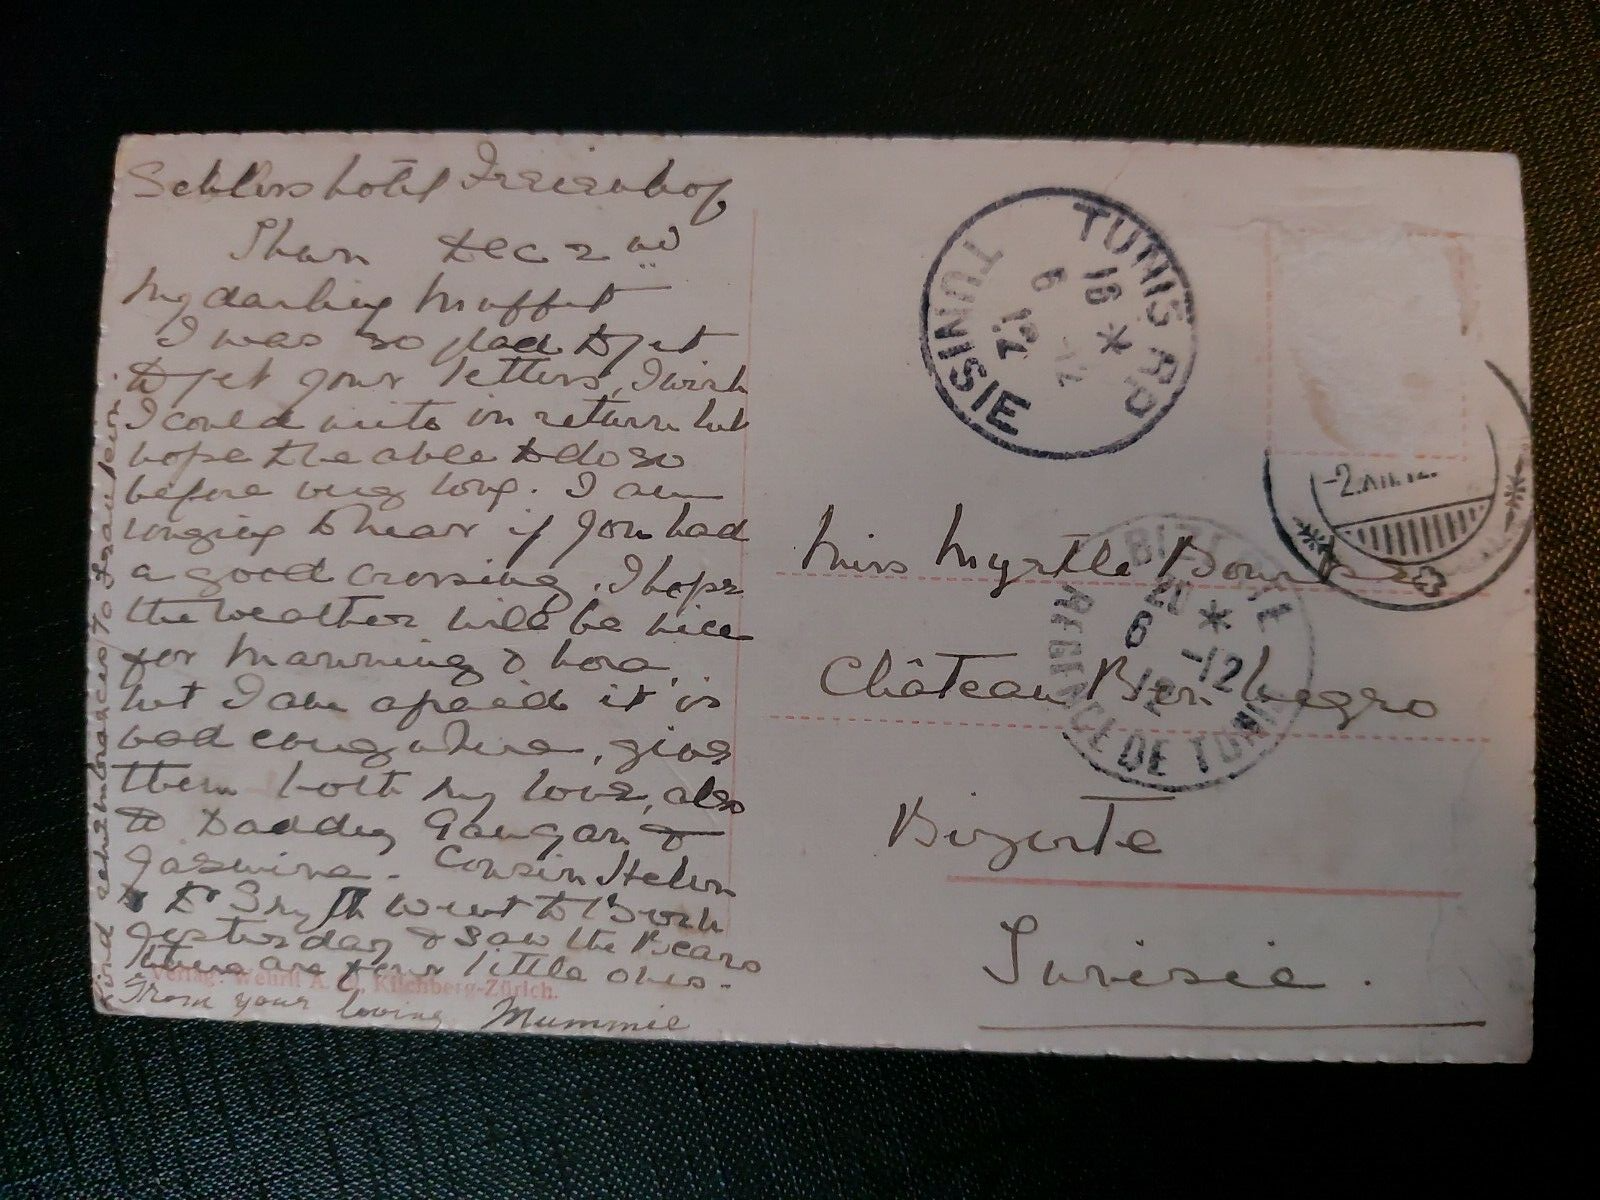 Schlosshotel Freienhof
Thun Dec 2nd
My darling Muffet
I was so glad to get
to get your letters, I wish
I could write in return but
hope to be able to do so
before very long. I am
longing to hear if you had
a good crossing. I hope
the weather will be nice
for Manning &
but I am afraid it is
bad everywhere, give
them both my love, also
to Daddy Gangan &
Jasmine. Cousin Helen
& Dr Smyth went to Bern
yesterday & saw the Bears
there are four little ones.
From your loving Mummie
Kind remembrances to Fraulein.
Verlag: Wehrli A. G. Kilchberg-Zürich.
TUNIS R.P
16 *
6 -12
12
TUNISIE
-2.XII.12.
BIZERTE
20 *
6 -12
12
REGENCE DE TUNIS
Miss Myrtle
Château Ben Negro
Bizerte
Tunisie.